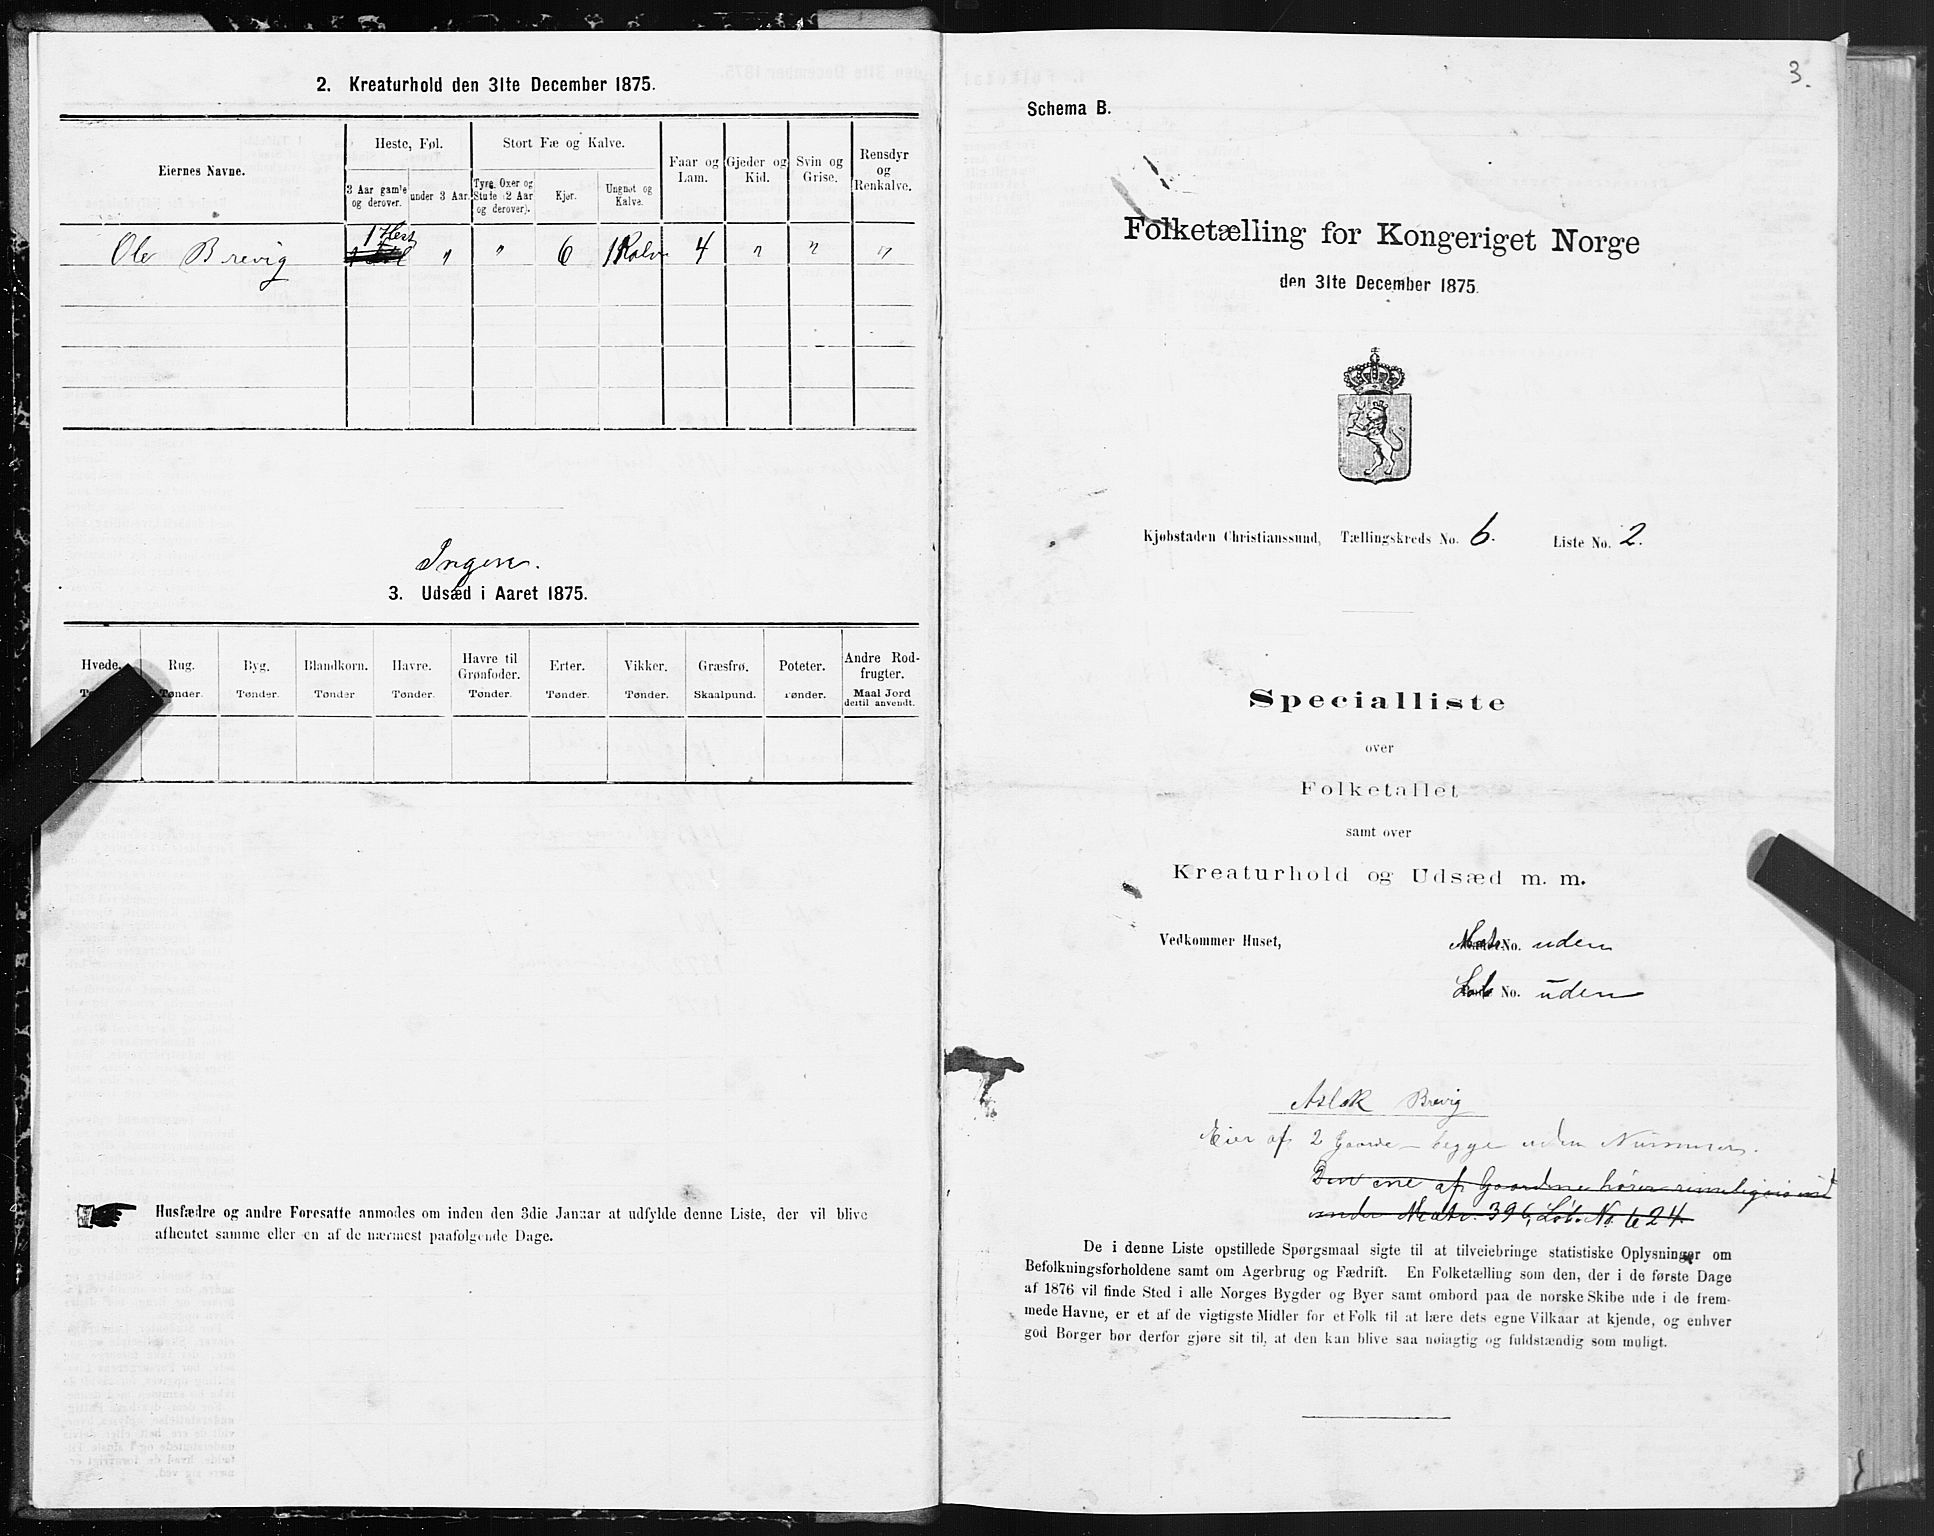 2. Kreaturhold den 31te December 1875.
Eiernes Navne.
Heste, Føl.
3 Aar gamle og derover.
under 3 Aar.
Stort Fæ og Kalve.
Tyre, Oxer og Stude (2 Aar og derover).
Kjør.
Ungnøt og Kalve.
Faar og Lam.
Gjeder og Kid.
Svin og Grise.
Rensdyr og Renkalve.
1 Hest
Ole Brevig 1 Føl " " 6 1 Kalv 4 " " "
Ingen.
3. Udsæd i Aaret 1875.
Hvede. Rug. Byg. Blandkorn. Havre. Havre til Grønfoder. Erter. Vikker. Græsfrø. Poteter. Andre Rodfrugter.
Tønder. Tønder. Tønder Tønder. Tønder. Tønder. Tønder. Skaalpund. Tønder. Maal Jord dertil anvendt.
Husfædre og andre Foresatte anmodes om inden den 3die Januar at udfylde denne Liste, der vil blive
afhentet samme eller en af de nærmest paafølgende Dage.
3.
Schema B.
1
Folketælling for Kongeriget Norge
den 31te December 1875.
Kjøbstaden Christianssund, Tællingskreds No. 6. Liste No. 2.
Specialliste
over
Folketallet
samt over
Kreaturhold og Udsæd m. m.
Vedkommer Huset, No. uden
No. uden
Aslak Brevig
Eier af 2 Gaarde – begge uden Nummer.
Den ene af Gaardene hører rimeligvis ind
under Matr. 396, Løb. No. 624
De i denne Liste opstillede Spørgsmaal sigte til at tilveiebringe statistiske Oplysninger om
Befolkningsforholdene samt om Agerbrug og Fædrift. En Folketælling som den, der i de første Dage
af 1876 vil finde Sted i alle Norges Bygder og Byer samt ombord paa de norske Skibe ude i de frem-
mede Havne, er et af de vigtigste Midler for et Folk til at lære dets egne Vilkaar at kjende, og enhver
god Borger bør derfor gjøre sit til, at den kan blive saa nøiagtig og fuldstændig som muligt.